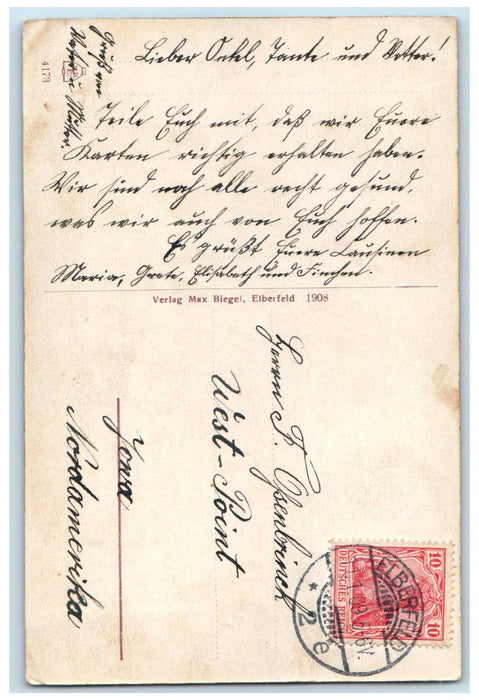 Lieber Onkel, Tante und Vetter!
Teile Euch mit, daß wir Euere
Karten richtig erhalten haben.
Wir sind noch alle recht gesund,
was wir auch von Euch hoffen.
Es grüßt Euere Cousinen
Maria, Grete, Elisabeth und Finchen.
Gruß von
Vater u Mutter.
4173
Verlag Max Biegel, Elberfeld 1908
Herrn F.
West-Point
Iowa
Nordamerika
DEUTSCHES REICH
10 10
ELBERFELD
* 2 e